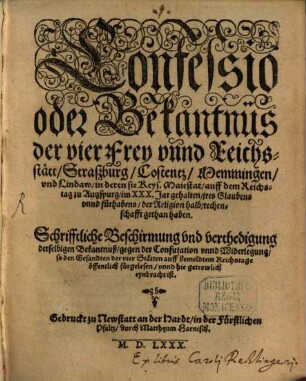 Confessio
oder Bekantnüs
der vier Frey vnnd Reichs-
stätt / Straßburg / Costentz / Memmingen /
vnd Lindaw / in deren sie Keys. Maiestat / auff dem Reichs-
tag zu Augspurg / im XXX. Jar gehalten / jres Glaubens
vnnd fürhabens / der Religion halb / rechen-
schafft gethan haben.
Schrifftliche Beschirmung vnd verthedigung
derselbigen Bekantnuß / gegen der Confutation vnnd Widerlegung /
so den Gesandten der vier Stätten auff bemeldtem Reichstage
öffentlich fürgelesen / vnnd hie getrewlich
eynbracht ist.
BIBLIOTHECA
REGIA
MONACENSIS
Gedruckt zu Newstatt an der Hardt / in der Fürstlichen
Pfaltz / durch Matthæum Harnisch.
M. D. LXXX.
Ex libris Caroli